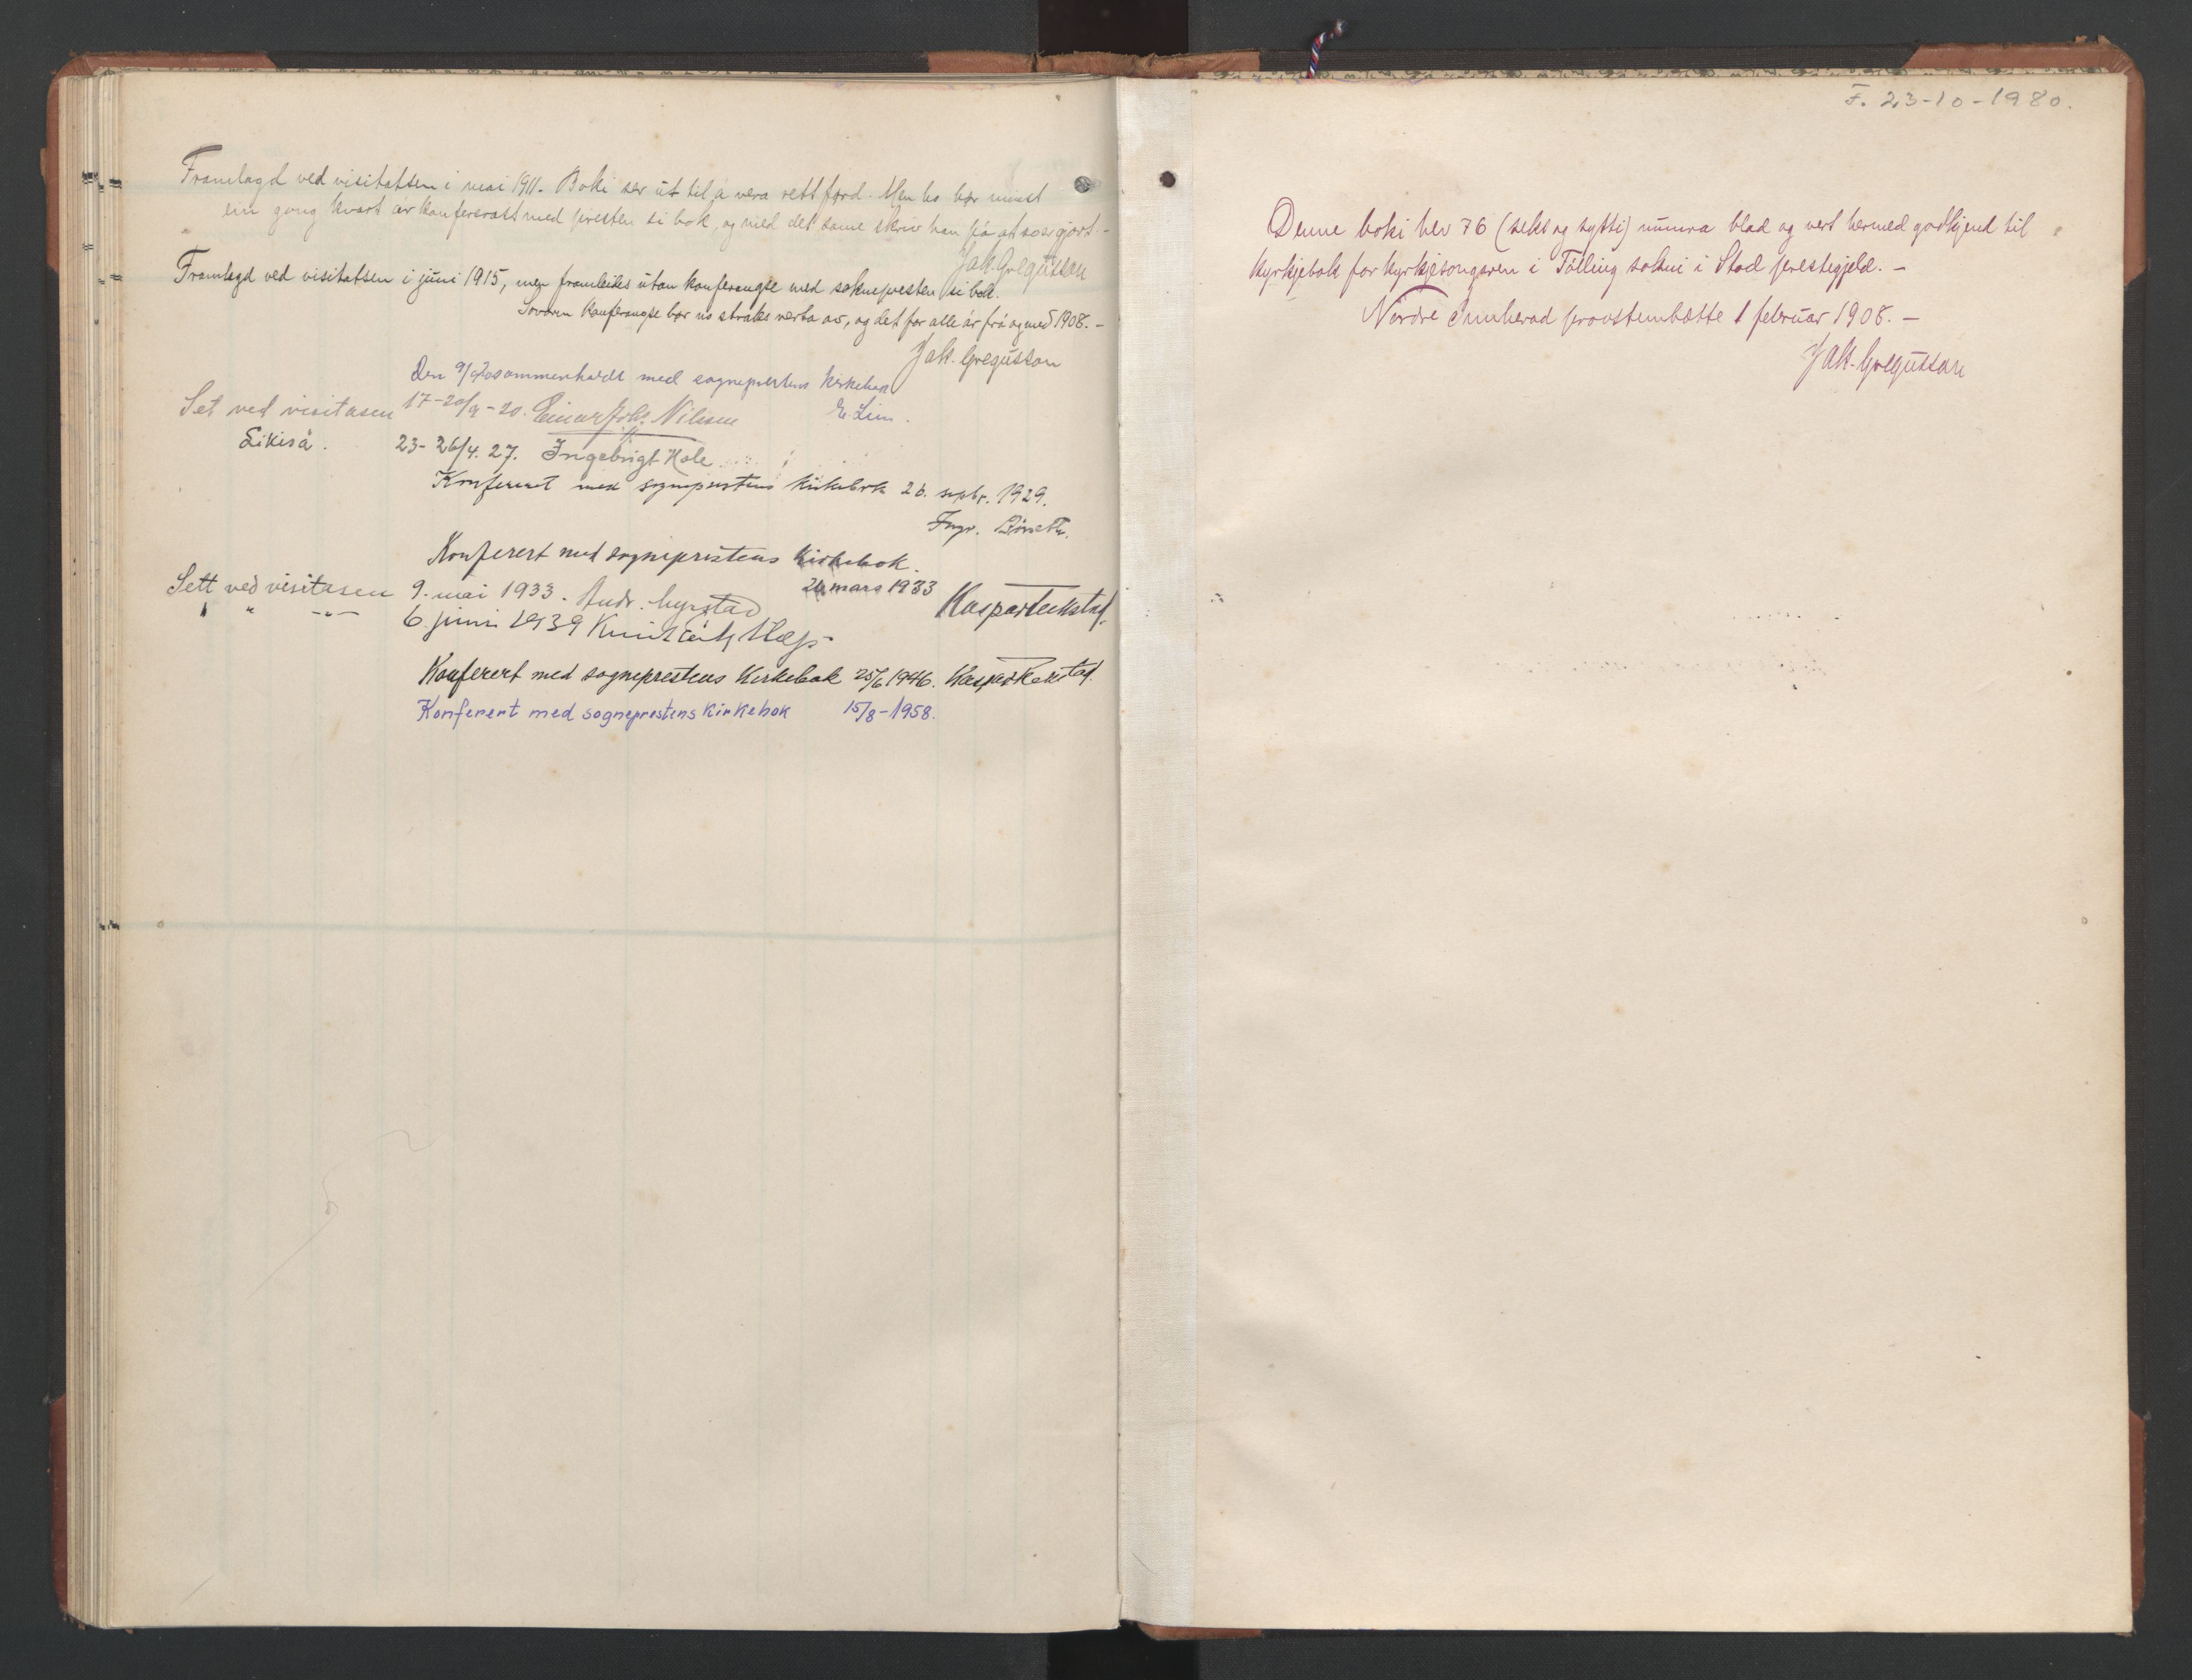 Framlagd ved visitatsen i mai 1911. Boki ser ut til å vera rett førd. Men ho bør minst
ein gong kvart år konfererast med presten si bok, og med det same skriv han på at so er gjort. -
Jak. Gregusson
Framlagd ved visitatsen i juni 1915, men framleides utan konferengse med soknepresten si bok.
Sovoren konferengse bør no straks verta av, og det for alle år frå og med 1908. -
Jak. Gregusson
Den 9/9 20 sammenholdt med sogneprestens kirkebok
E. Lien.
Set ved visitasen 17-20/9-20. Einar Joh. Nilssen
Likeså. 23-26/4. 27. Ingebrigt Hole
Konferert med sogneprestens kirkebok 26. septbr. 1929.
Ingv.
Konferert med sogneprestens Kirkebok.
26 mars 1933 Kaspar Eckstad.
Sett ved visitasen 9. mai 1933. Andr. Gyrstad
" " -"- 6. juni 1939
Konferert med sogneprestens Kirkebok 25/6 1946. Kaspar Eckstad.
Konferert med sogneprestens Kirkebok 15/8-1958.
F. 23-10-1980.
Denne boki hev 76 (seks og sytti) numra blad og vert hermed godkjend til
kyrkjebok for kyrkjesongaren i Følling sokni i Stod prestegjeld. -
Nørdre Innherad prostembætte 1 februar 1908. -
Jak. Gregusson